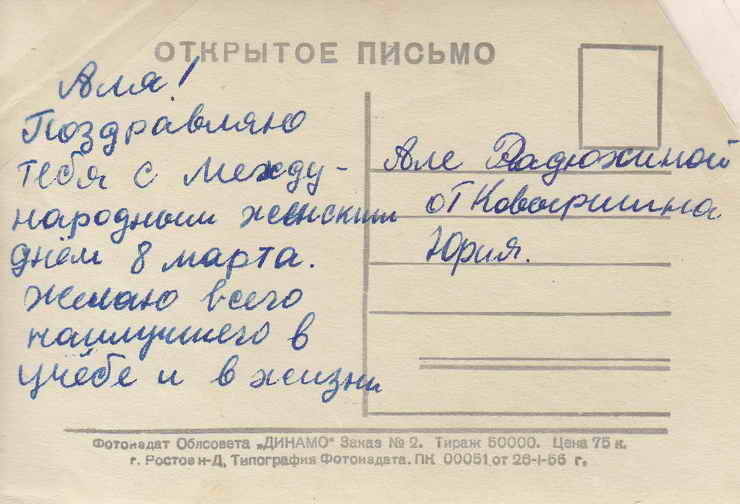 ОТКРЫТОЕ ПИСЬМО
Аля!
Поздравляю
тебя с между-
народным женским
днём 8 марта.
Желаю всего
наилучшего в
учёбе и в жизни
Але Радюжиной
от Ковыршина
Юрия.
Фотоиздат Облсовета „ДИНАМО" Заказ № 2. Тираж 50000. Цена 75 к.
г. Ростов н-Д, Типография Фотоиздата. ПК 00051 от 26-I-56 г.